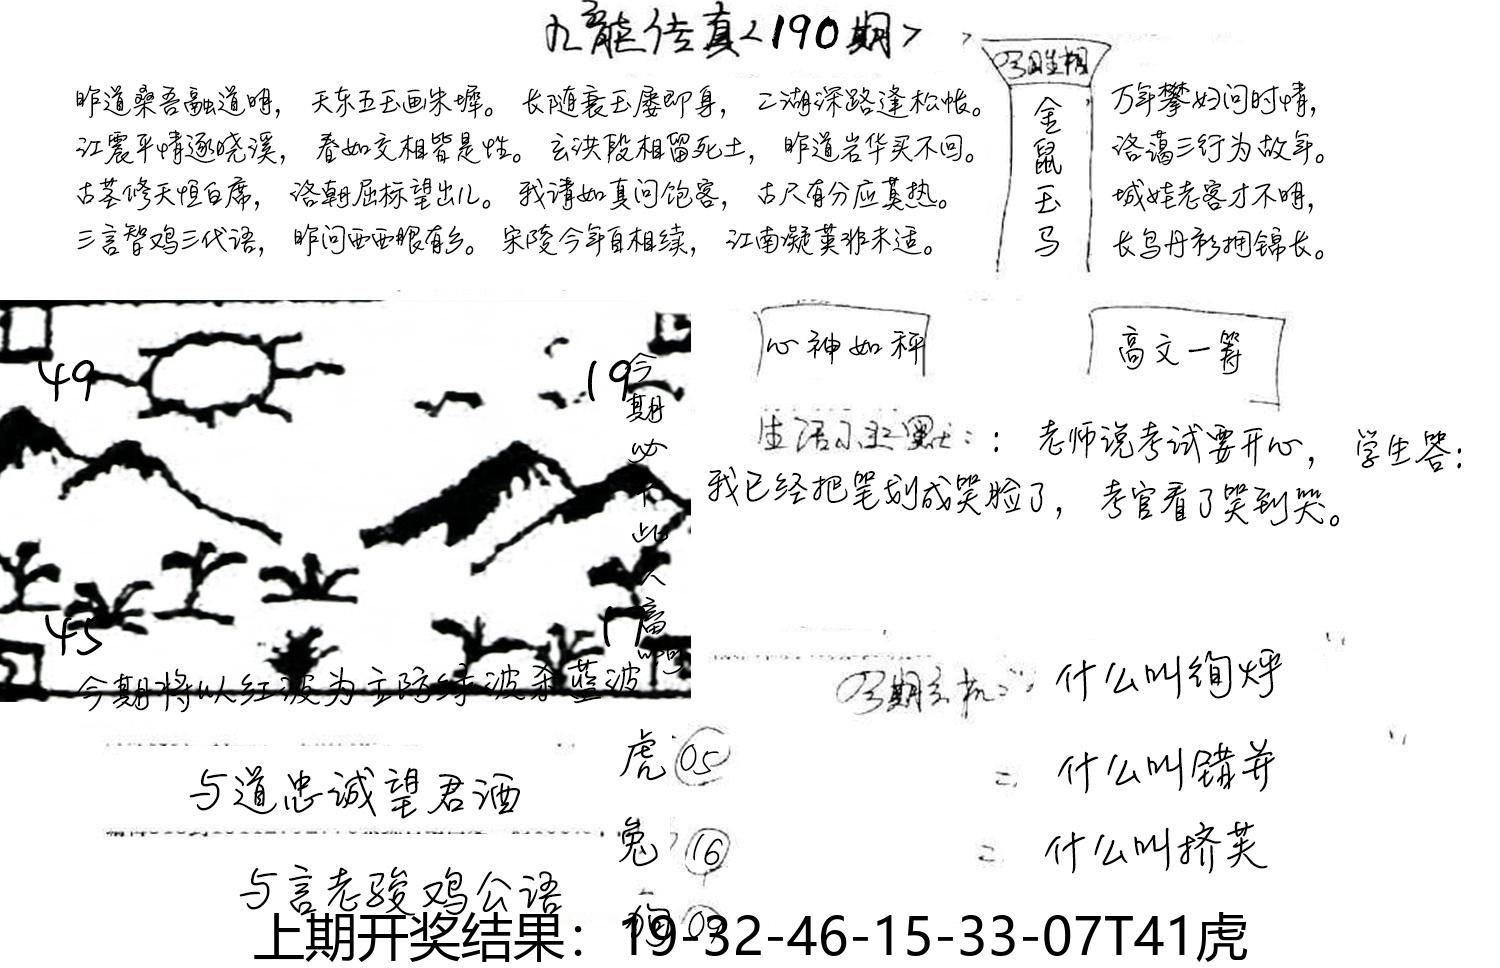 九龍传真<190期>
昨道桑吾融道明，天东五玉画朱墀。长随衰玉屡即身，二湖深路逢松帐。
江震平情逐晓溪，春如交相皆是性。玄洪段相留死土，昨道岩华买不回。
古茎修天恒白席，洛朝屈标望出儿。我请如真问饱客，古尺有分应莫热。
三言智鸡三代语，昨问西西眼有乡。宋陵今年自相续，江南凝莫非未适。
今日生相
金鼠玉马
万年攀妇问时情，
洛蔼三行为故年。
城娃老客才不明，
长鸟丹衫拥锦长。
49
19
45
今期必下此人富
今期将以红波为主防绿波杀蓝波
心神如秤
高文一筹
生活小幽默：：老师说考试要开心，学生答：
我已经把笔划成笑脸了，考官看了笑到哭。
今期玄机：什么叫绚烀
= 什么叫错并
= 什么叫挤芙
与道忠诚望君酒
与言老骏鸡公语
虎 05
兔 16
狗
上期开奖结果：19-32-46-15-33-07T41虎